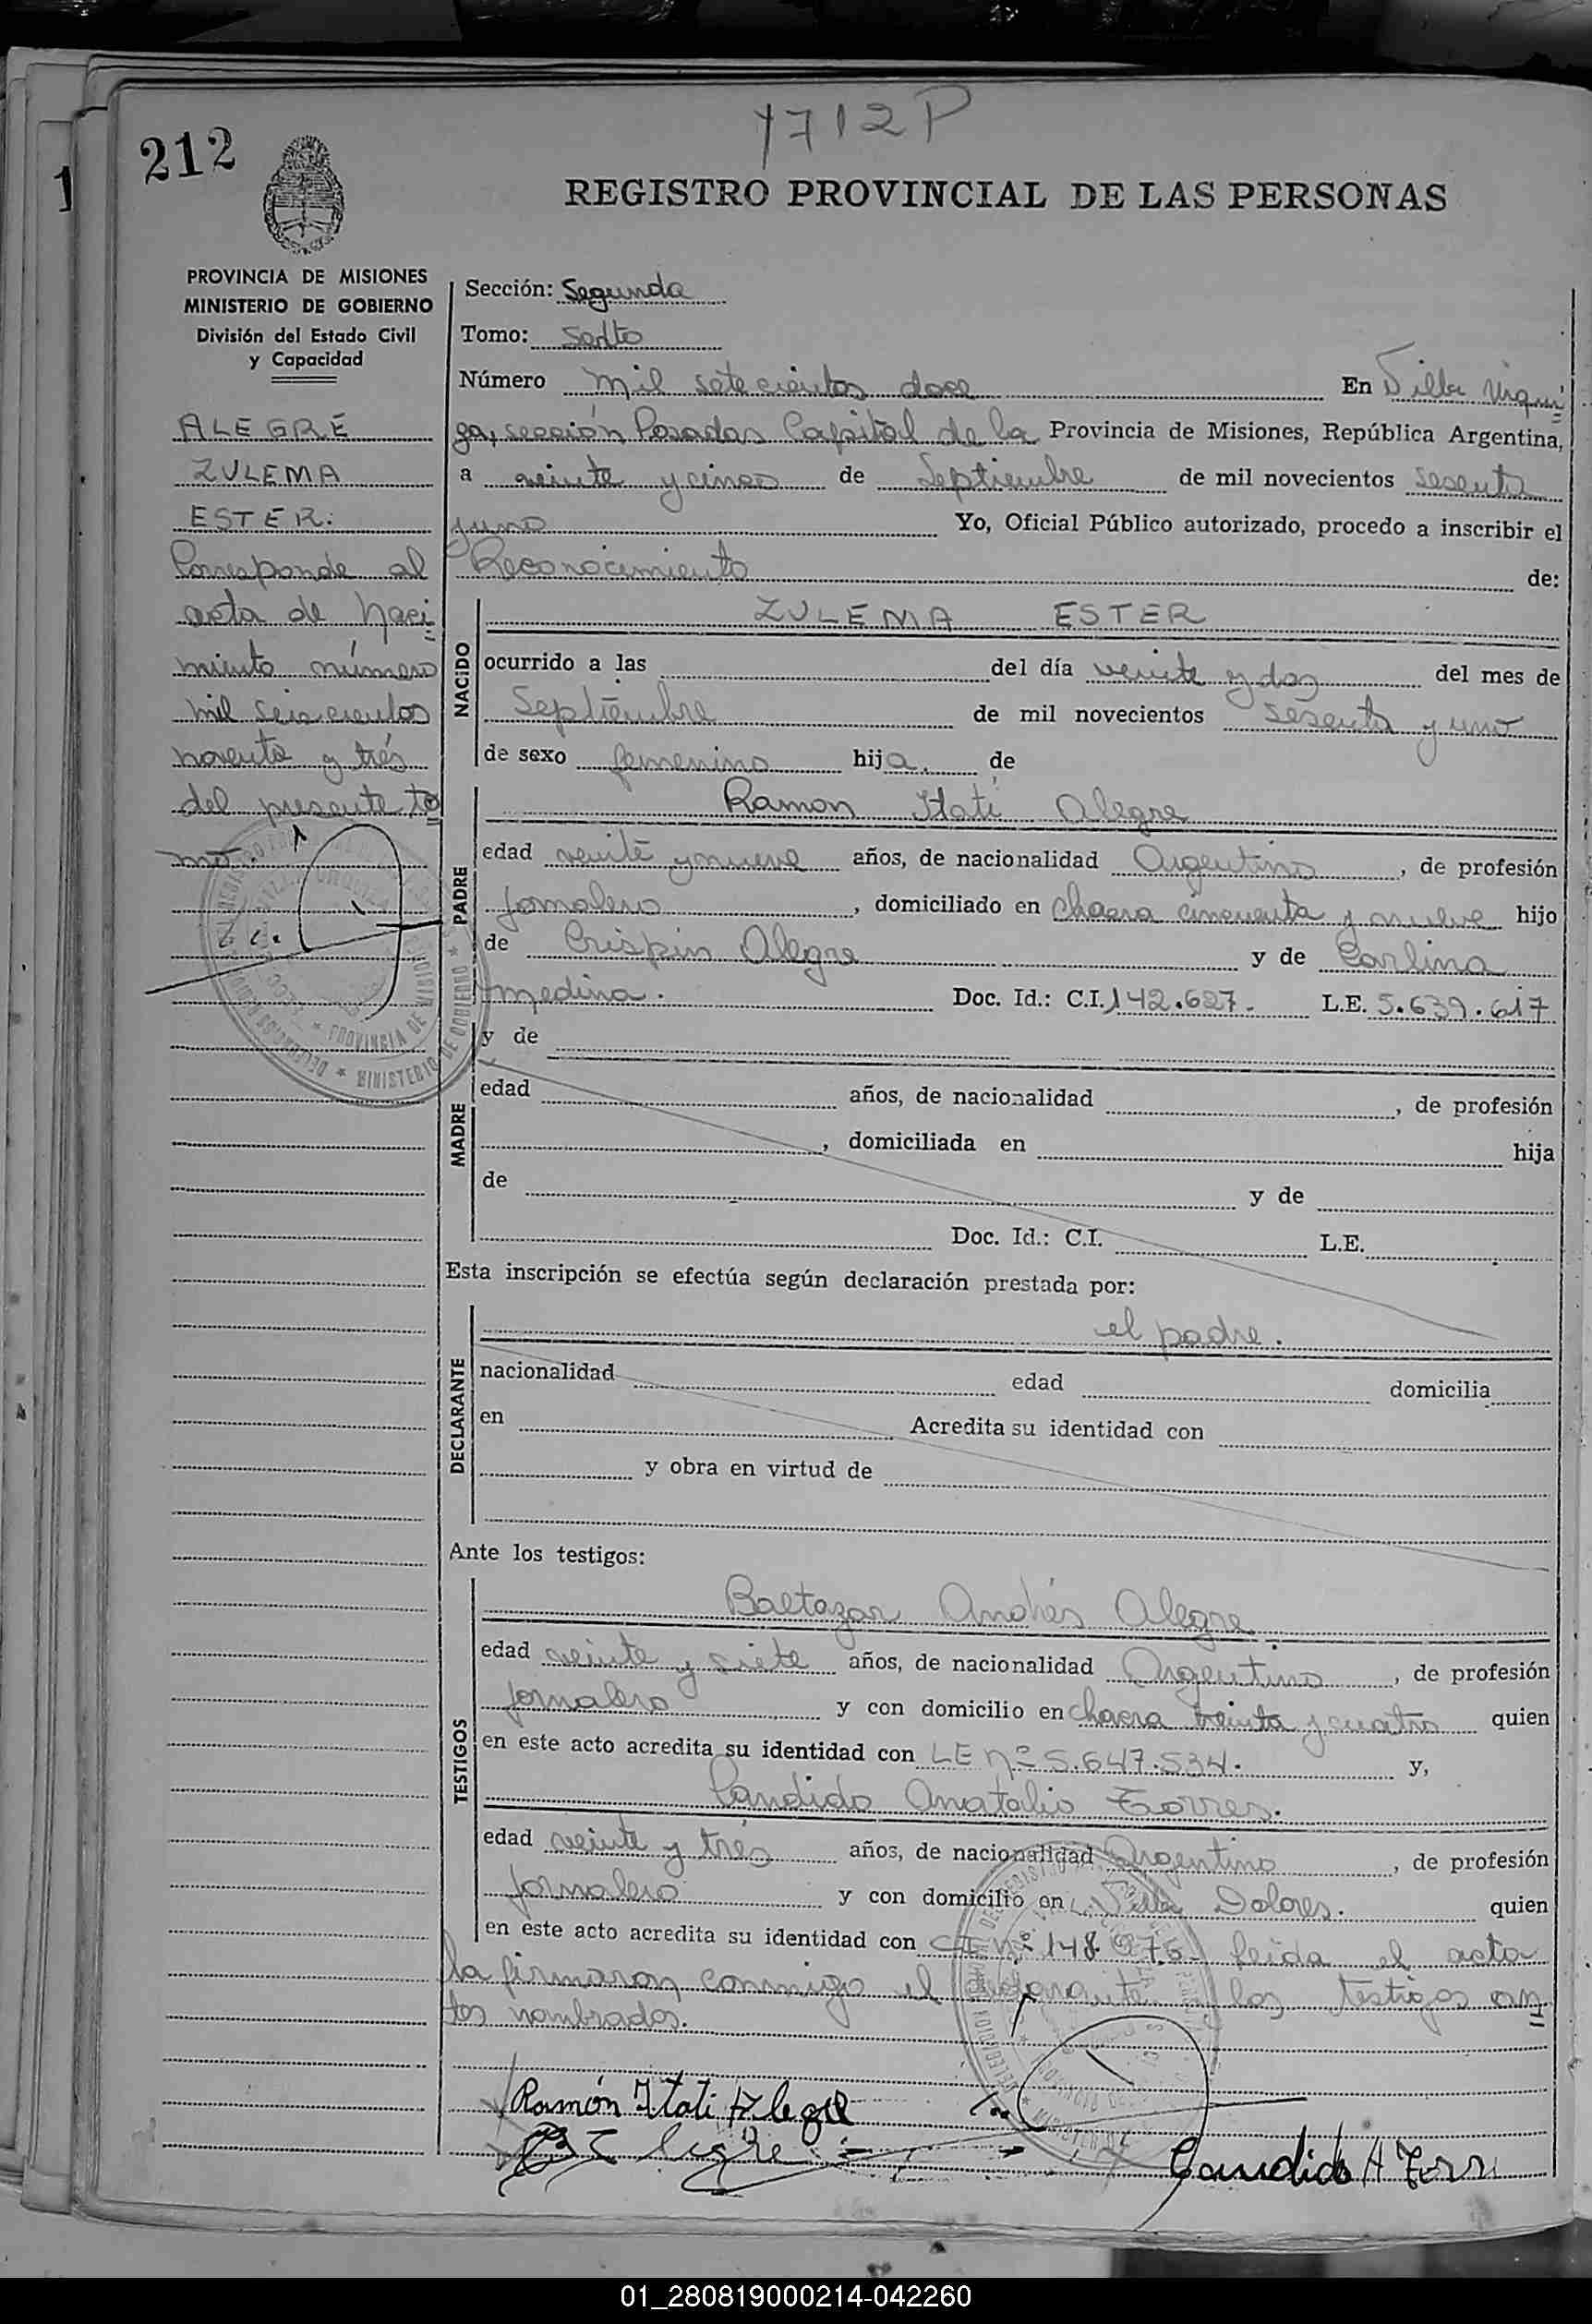 1712P
212
1
REGISTRO PROVINCIAL DE LAS PERSONAS
PROVINCIA DE MISIONES
MINISTERIO DE GOBIERNO
División del Estado Civil
y Capacidad
ALEGRE
ZULEMA
ESTER.
Corresponde al
acta de Naci
miento número
mil seiscientos
noventa y trés
del presente to
mo.
Sección: Segunda
Tomo: Sexto
Número Mil setecientos doce En Villa Urqui
ga, sección Posadas Capital de la Provincia de Misiones, República Argentina,
a veinte y cinco de Septiembre de mil novecientos sesenta
y uno Yo, Oficial Público autorizado, procedo a inscribir el
Reconocimiento de:
NACIDO
ZULEMA ESTER
ocurrido a las del día veinte y dos del mes de
Septiembre de mil novecientos sesenta y uno
de sexo femenino hija. de
PADRE
Ramon Itatí Alegre
edad veinte y nueve años, de nacionalidad Argentino, de profesión
Jornalero, domiciliado en chacra cincuenta y nueve hijo
de Crispin Alegre y de Carlina
Medina. Doc. Id.: C.I. 142.627. L.E. 5.639.617
MADRE
y de
edad años, de nacionalidad , de profesión
, domiciliada en hija
de y de
Doc. Id.: C.I. L.E.
Esta inscripción se efectúa según declaración prestada por:
DECLARANTE
el padre.
nacionalidad edad domicilia
en Acredita su identidad con
y obra en virtud de
Ante los testigos:
TESTIGOS
Baltazar Andrés Alegre
edad veinte y siete años, de nacionalidad Argentino, de profesión
Jornalero y con domicilio en chacra treinta y cuatro quien
en este acto acredita su identidad con LE nº 5.647.534. y,
Candido Anatalio Torres.
edad veinte y trés años, de nacionalidad Argentino, de profesión
Jornalero y con domicilio en Villa Dolores. quien
en este acto acredita su identidad con CI nº 148. leida el acta
la firmaron conmigo el declarante y los testigos an
tes nombrados.
Ramón Itati Alegre
Candido A Torr
01_280819000214-042260